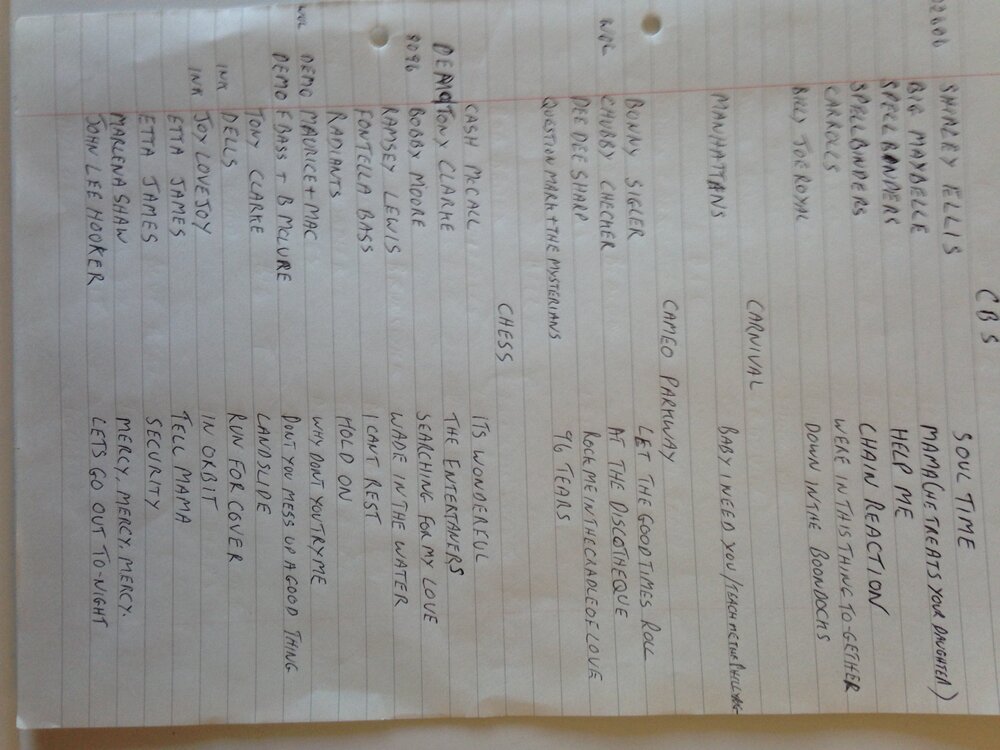 CBS
SHIRLEY ELLIS SOUL TIME
BIG MAYBELLE MAMA (HE TREATS YOUR DAUGHTER)
SPELLBINDERS HELP ME
SPELLBINDERS CHAIN REACTION
CARROLLS WERE IN THIS THING TO-GETHER
BILLY JOE ROYAL DOWN IN THE BOONDOCKS
CARNIVAL
MANHATTANS BABY I NEED YOU/TEACH ME THE PHILLY
CAMEO PARKWAY
BUNNY SIGLER LET THE GOOD TIMES ROLL
WOL CHUBBY CHECKER AT THE DISCOTHEQUE
DEE DEE SHARP ROCK ME IN THE CRADLE OF LOVE
QUESTION MARK + THE MYSTERIANS 96 TEARS
CHESS
CASH McCALL ITS WONDERFUL
DEMO TONY CLARKE THE ENTERTANERS
8096 BOBBY MOORE SEARCHING FOR MY LOVE
RAMSEY LEWIS WADE IN THE WATER
FONTELLA BASS I CANT REST
RADIANTS HOLD ON
WOL DEMO MAURICE + MAC WHY DONT YOU TRY ME
DEMO F BASS + B MCLURE DONT YOU MESS UP A GOOD THING
TONY CLARKE LANDSLIDE
INK DELLS RUN FOR COVER
INK JOY LOVEJOY IN ORBIT
ETTA JAMES TELL MAMA
ETTA JAMES SECURITY
MARLENA SHAW MERCY, MERCY, MERCY.
JOHN LEE HOOKER LETS GO OUT TO-NIGHT